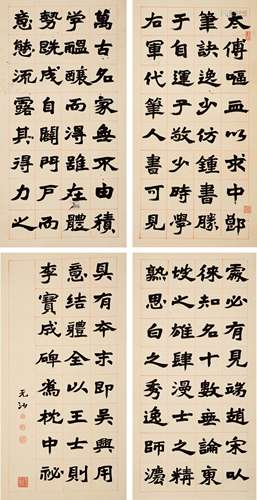 太傅嘔血以求中郎
筆訣逸少仿鍾書勝
于自運子敬少時學
右軍代筆人書可見
萬古名家無不由積
學醞釀而得雖在體
勢既成自闢門戶而
意態流露其得力之
處必有見端趙宋以
徠知名十數無論東
坡之雄肆漫士之精
熟思白之秀逸師灋
具有本末即吳興用
意結體全以王士則
李寶成碑為枕中祕